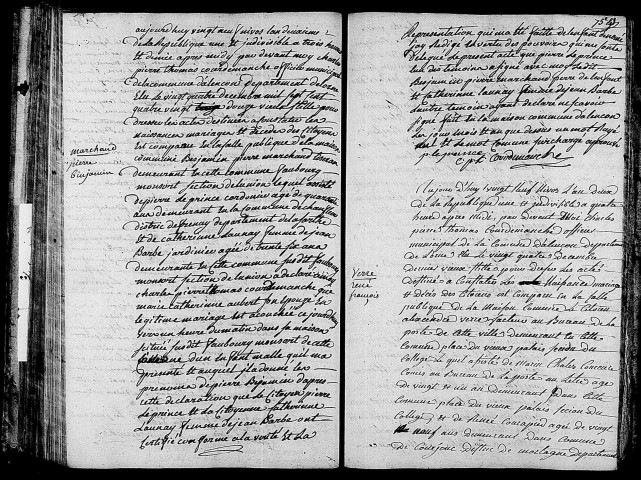 aujourdhuy vingt neuf nivos lan deuxieme
de la republique une et judivisible a trois heures
et demie apres midy pas devant moy charles
pierre thomas courdemanche officie municipal
de la commune dalencon departement de lorne
Elu le vingt quatre decembre mil sept cent
quatre vingt douze vieux stile pour
dresser les actes destinés a constater les
naissances mariages et décédés des Citoyens
est comparu en la salle publique de la maison
commune Benjamin pierre marchand
demeurant en cette commune faubourg
monsort section de lunion lequel assisté
de pierre le prince cordonier agé de quarante
ans demeurant en la commune de
district de fresnay departement de la sarthe
et de catherinne launay femme de jean
Barbe jardiniere agée de trente six ans
demeurante en cette commune susdit faubourg
monsort section de lunion a declaré a moy
charle pierre thomas courdemanche que
marie catherinne aubert son epouse en
legitime mariage est accouchée ce jourdhuy
vers un heure du matin dans sa maison
situé susdit faubourg monsort de cette
commune dun enfant malle quil ma
presenté et auquel il a donné les
prenoms de pierre Bejamin dapres
cette declarations que le Citoyen pierre
le prince et la Citoyenne Catherinne
launay femme de jean Barbe ont
certifié conforme a la vérité et la
marchand
pierre
Benjamin
75
Representation qui ma été faitte de lenfant denommé
jay redigé en vertu des pouvoirs qui me sont
delegué le present acte que pierre le prince
lun des temoins a signé avec moy et dit
Bejamin pierre marchand pere de lenfant
et Catherinne launay femme de jean Barbe
autre temoin ayant declaré ne savoir
signé fait en la maison commune dalencon
les jour mois et an que dessus un mot rayé
nul et le mot comune surchargé approuvé
p le prince
c p t Courdemanche
Aujourd'huy vingt neuf nivos l'an deux
de la Republique une et judivisible a quatre
heures apres midi, par devant Moi Charles
pierre thomas Courdemanche officier
municipal de la Commune d'alencon departement
de l'orne Elu le vingt quatre decembre
dernier vieux stille pour dresser les actes
Destinés a Constater les Naissances mariages
et décès des Citoyens est comparu en la salle
publique de la Maison Commune le Citoien
alexandre verre facteur au Bureau de la
poste de cette ville demeurant en Cette
Commune place du vieux palais section du
College le quel assisté de Marin Chales
Comis au bureau de la poste au lettre agé
de vingt et un an demeurant dans cette
Commune place du vieux palais section du
College et de Renée agée de vingt
neuf ans demeurant dans Commune
de district de mortagne departement
Verre
rené
françois